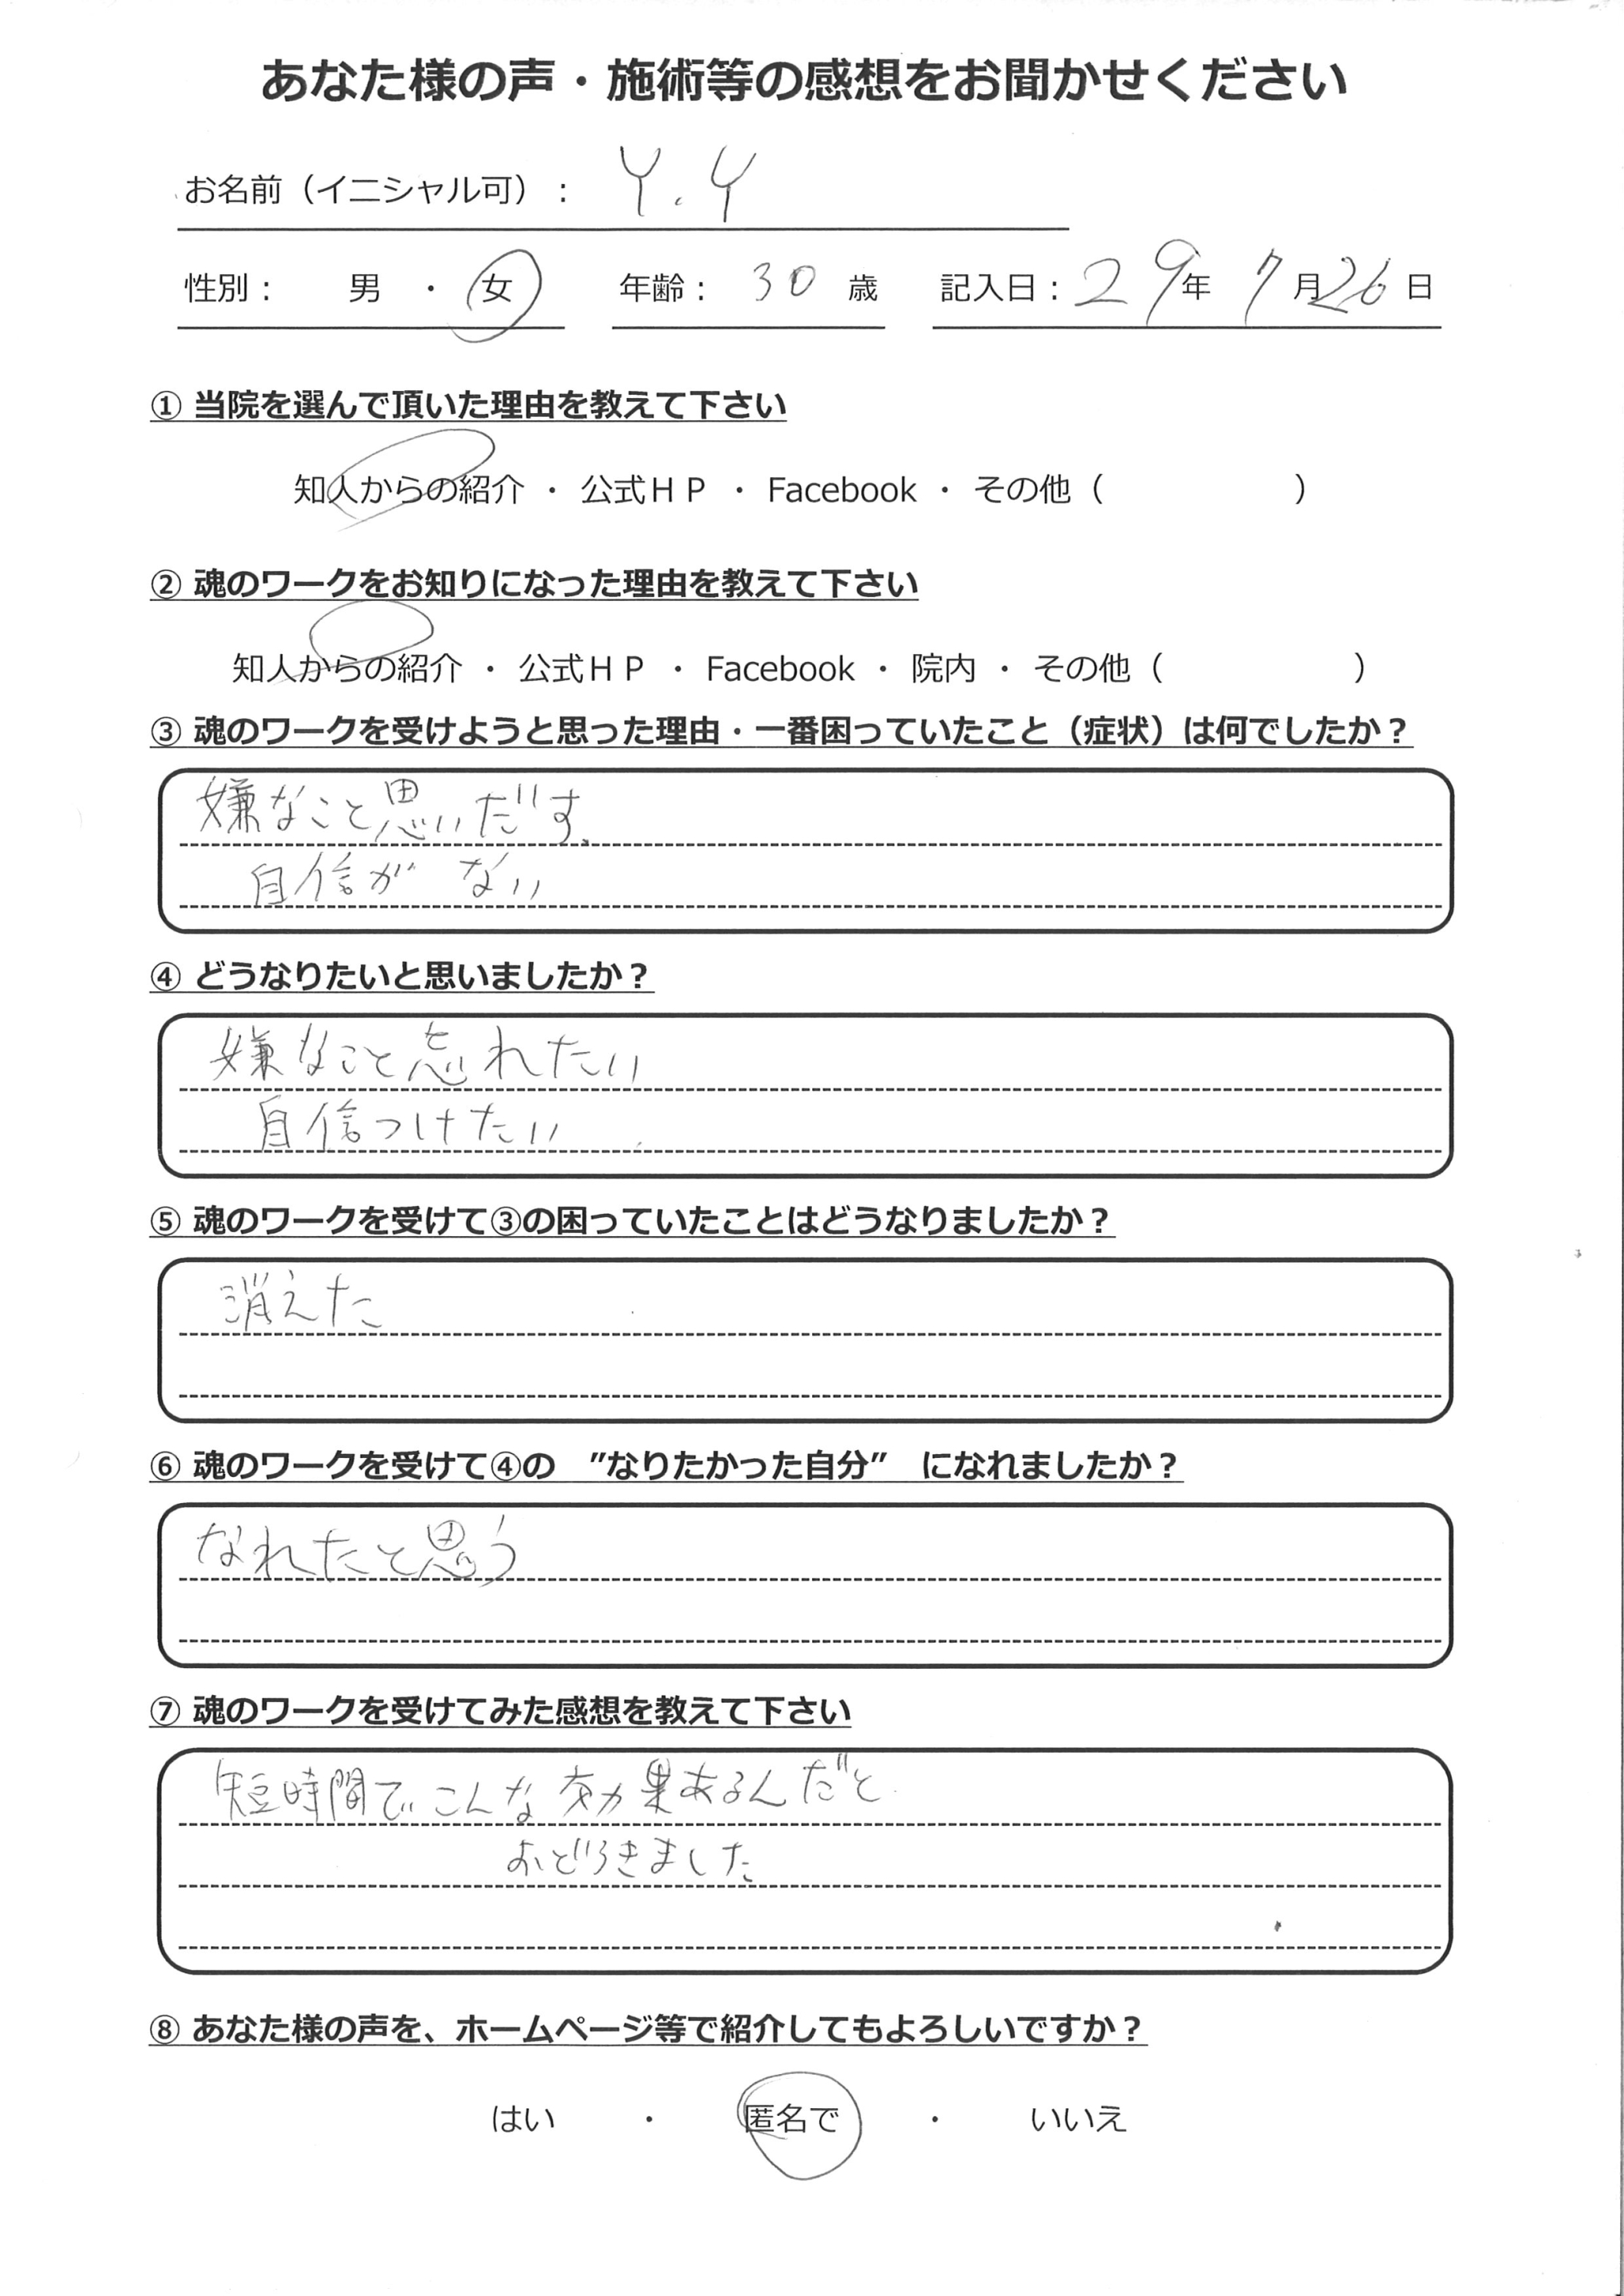 あなた様の声・施術等の感想をお聞かせください
お名前（イニシャル可）： Y.Y
性別： 男 ・ 女 年齢： 30 歳 記入日：29年 7月26日
① 当院を選んで頂いた理由を教えて下さい
知人からの紹介 ・ 公式ＨＰ ・ Facebook ・ その他（ ）
② 魂のワークをお知りになった理由を教えて下さい
知人からの紹介 ・ 公式ＨＰ ・ Facebook ・ 院内 ・ その他（ ）
③ 魂のワークを受けようと思った理由・一番困っていたこと（症状）は何でしたか？
嫌なこと思いだす、
自信が ない
④ どうなりたいと思いましたか？
嫌なこと忘れたい
自信つけたい
⑤ 魂のワークを受けて③の困っていたことはどうなりましたか？
消えた
⑥ 魂のワークを受けて④の ”なりたかった自分” になれましたか？
なれたと思う
⑦ 魂のワークを受けてみた感想を教えて下さい
短時間でこんな効果あるんだと
おどろきました
⑧ あなた様の声を、ホームページ等で紹介してもよろしいですか？
はい ・ 匿名で ・ いいえ